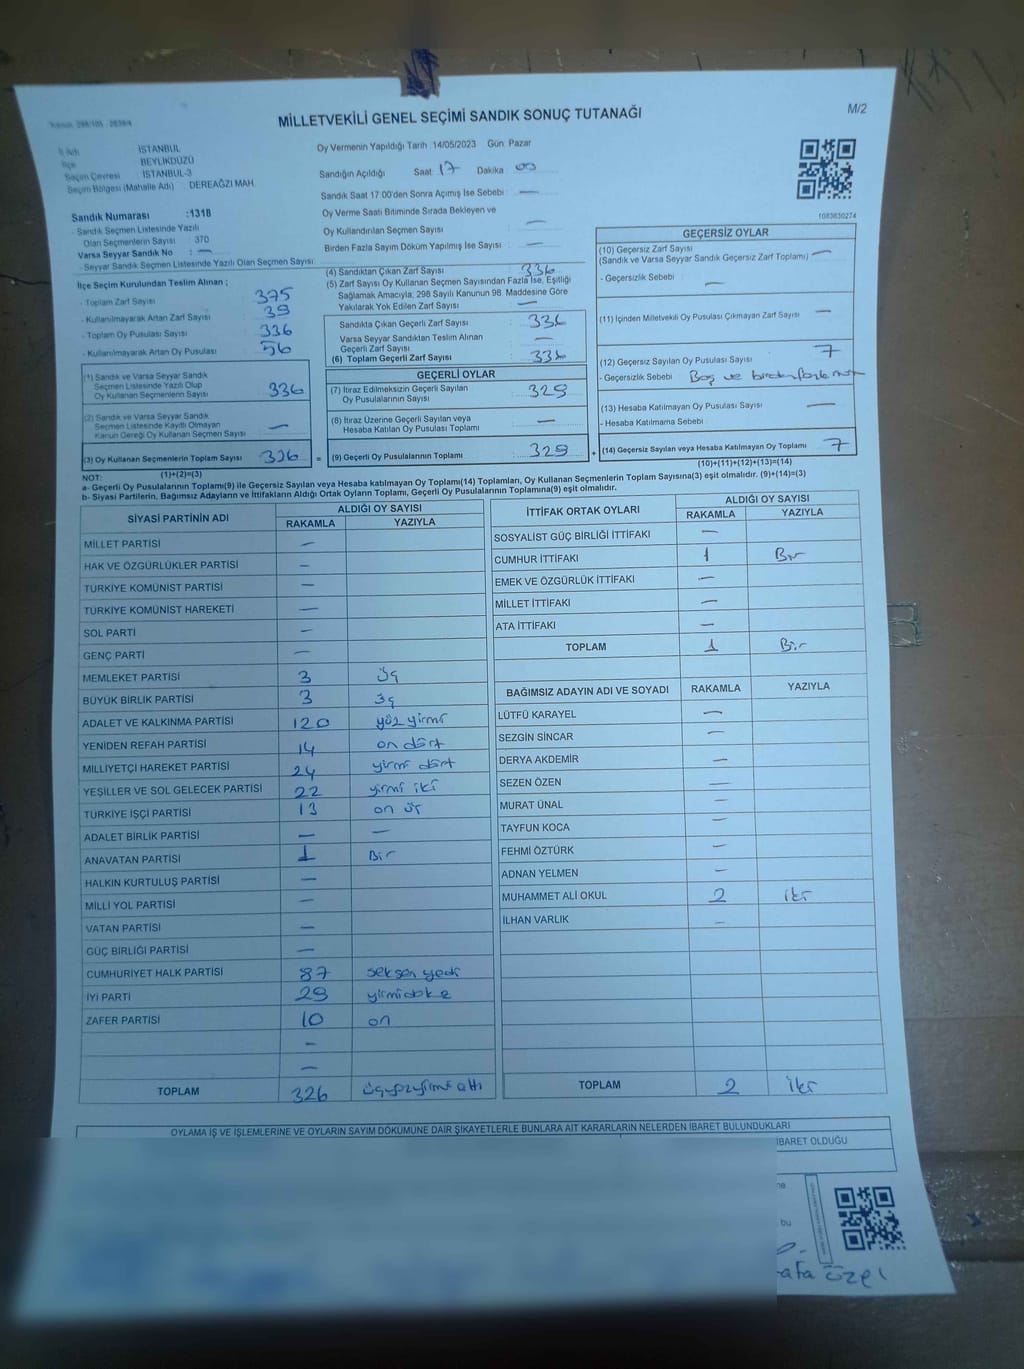 Kanun: 298/105 - 2839/4
MİLLETVEKİLİ GENEL SEÇİMİ SANDIK SONUÇ TUTANAĞI
M/2
İli Adı İSTANBUL
İlçe BEYLİKDÜZÜ
Seçim Çevresi İSTANBUL-3
Seçim Bölgesi (Mahalle Adı) : DEREAĞZI MAH.
Oy Vermenin Yapıldığı Tarih :14/05/2023 Gün: Pazar
Sandığın Açıldığı Saat 17 Dakika 00
Sandık Saat 17.00'den Sonra Açımış İse Sebebi : —
Oy Verme Saati Bitiminde Sırada Bekleyen ve
Oy Kullandırılan Seçmen Sayısı —
Birden Fazla Sayım Döküm Yapılmış İse Sayısı : —
1083630274
Sandık Numarası :1318
- Sandık Seçmen Listesinde Yazılı
Olan Seçmenlerin Sayısı : 370
Varsa Seyyar Sandık No : —
- Seyyar Sandık Seçmen Listesinde Yazılı Olan Seçmen Sayısı:
İlçe Seçim Kurulundan Teslim Alınan ;
- Toplam Zarf Sayısı 375
- Kullanılmayarak Artan Zarf Sayısı 39
- Toplam Oy Pusulası Sayısı 336
- Kullanılmayarak Artan Oy Pusulası 56
(1) Sandık ve Varsa Seyyar Sandık
Seçmen Listesinde Yazılı Olup
Oy Kullanan Seçmenlerin Sayısı 336
(2) Sandık ve Varsa Seyyar Sandık
Seçmen Listesinde Kayıtlı Olmayan
Kanun Gereği Oy Kullanan Seçmen Sayısı —
(3) Oy Kullanan Seçmenlerin Toplam Sayısı 336 =
(1)+(2)=(3)
(4) Sandıktan Çıkan Zarf Sayısı : 336
(5) Zarf Sayısı Oy Kullanan Seçmen Sayısından Fazla İse, Eşitliği
Sağlamak Amacıyla, 298 Sayılı Kanunun 98. Maddesine Göre
Yakılarak Yok Edilen Zarf Sayısı : —
Sandıkta Çıkan Geçerli Zarf Sayısı : 336
Varsa Seyyar Sandıktan Teslim Alınan
Geçerli Zarf Sayısı —
(6) Toplam Geçerli Zarf Sayısı : 336
GEÇERLİ OYLAR
(7) İtiraz Edilmeksizin Geçerli Sayılan
Oy Pusulalarının Sayısı : 329
(8) İtiraz Üzerine Geçerli Sayılan veya
Hesaba Katılan Oy Pusulası Toplamı —
(9) Geçerli Oy Pusulalarının Toplamı : 329 +
GEÇERSİZ OYLAR
(10) Geçersiz Zarf Sayısı
(Sandık ve Varsa Seyyar Sandık Geçersiz Zarf Toplamı) —
- Geçersizlik Sebebi : —
(11) İçinden Milletvekili Oy Pusulası Çıkmayan Zarf Sayısı —
(12) Geçersiz Sayılan Oy Pusulası Sayısı 7
- Geçersizlik Sebebi Boş ve birden fazla
(13) Hesaba Katılmayan Oy Pusulası Sayısı —
- Hesaba Katılmama Sebebi :
(14) Geçersiz Sayılan veya Hesaba Katılmayan Oy Toplamı : 7
(10)+(11)+(12)+(13)=(14)
NOT:
a- Geçerli Oy Pusulalarının Toplamı(9) ile Geçersiz Sayılan veya Hesaba katılmayan Oy Toplamı(14) Toplamları, Oy Kullanan Seçmenlerin Toplam Sayısına(3) eşit olmalıdır. (9)+(14)=(3)
b- Siyasi Partilerin, Bağımsız Adayların ve İttifakların Aldığı Ortak Oyların Toplamı, Geçerli Oy Pusulalarının Toplamına(9) eşit olmalıdır.
SİYASİ PARTİNİN ADI ALDIĞI OY SAYISI
RAKAMLA YAZIYLA
MİLLET PARTİSİ —
HAK VE ÖZGÜRLÜKLER PARTİSİ —
TÜRKİYE KOMÜNİST PARTİSİ —
TÜRKİYE KOMÜNİST HAREKETİ —
SOL PARTİ —
GENÇ PARTİ —
MEMLEKET PARTİSİ 3 üç
BÜYÜK BİRLİK PARTİSİ 3 üç
ADALET VE KALKINMA PARTİSİ 120 yüz yirmi
YENİDEN REFAH PARTİSİ 14 on dört
MİLLİYETÇİ HAREKET PARTİSİ 24 yirmi dört
YEŞİLLER VE SOL GELECEK PARTİSİ 22 yirmi iki
TÜRKİYE İŞÇİ PARTİSİ 13 on üç
ADALET BİRLİK PARTİSİ — —
ANAVATAN PARTİSİ 1 Bir
HALKIN KURTULUŞ PARTİSİ —
MİLLİ YOL PARTİSİ —
VATAN PARTİSİ —
GÜÇ BİRLİĞİ PARTİSİ —
CUMHURİYET HALK PARTİSİ 87 seksen yedi
İYİ PARTİ 29 yirmidokz
ZAFER PARTİSİ 10 on
—
—
TOPLAM 326 üçyüzyirmi altı
İTTİFAK ORTAK OYLARI ALDIĞI OY SAYISI
RAKAMLA YAZIYLA
SOSYALİST GÜÇ BİRLİĞİ İTTİFAKI —
CUMHUR İTTİFAKI 1 Bir
EMEK VE ÖZGÜRLÜK İTTİFAKI —
MİLLET İTTİFAKI —
ATA İTTİFAKI —
TOPLAM 1 Bir
BAĞIMSIZ ADAYIN ADI VE SOYADI RAKAMLA YAZIYLA
LÜTFÜ KARAYEL —
SEZGİN SİNCAR —
DERYA AKDEMİR —
SEZEN ÖZEN —
MURAT ÜNAL —
TAYFUN KOCA —
FEHMİ ÖZTÜRK —
ADNAN YELMEN —
MUHAMMET ALİ OKUL 2 iki
İLHAN VARLIK —
TOPLAM 2 iki
OYLAMA İŞ VE İŞLEMLERİNE VE OYLARIN SAYIM DÖKÜMÜNE DAİR ŞİKAYETLERLE BUNLARA AİT KARARLARIN NELERDEN İBARET BULUNDUKLARI
İBARET OLDUĞU
ne
bu
afa özel